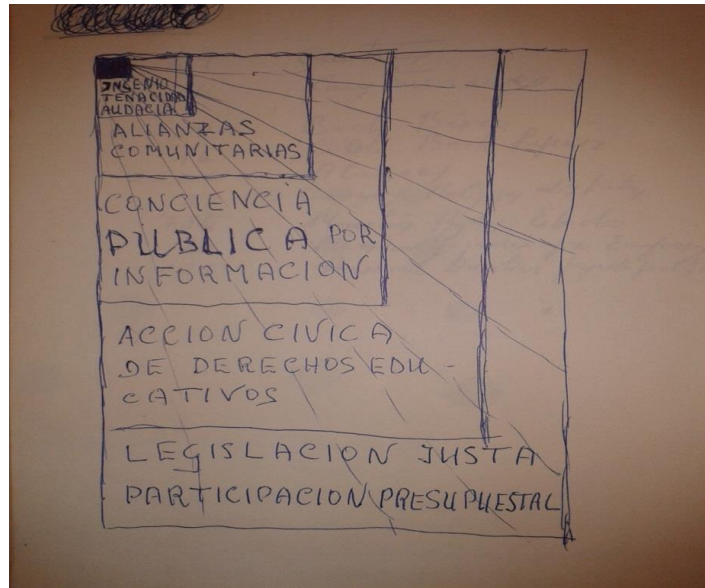 INGENIO
TENACIDAD
AUDACIA
ALIANZAS
COMUNITARIAS
CONCIENCIA
PUBLICA POR
INFORMACION
ACCION CIVICA
DE DERECHOS EDU-
CATIVOS
LEGISLACION JUSTA
PARTICIPACION PRESUPUESTAL